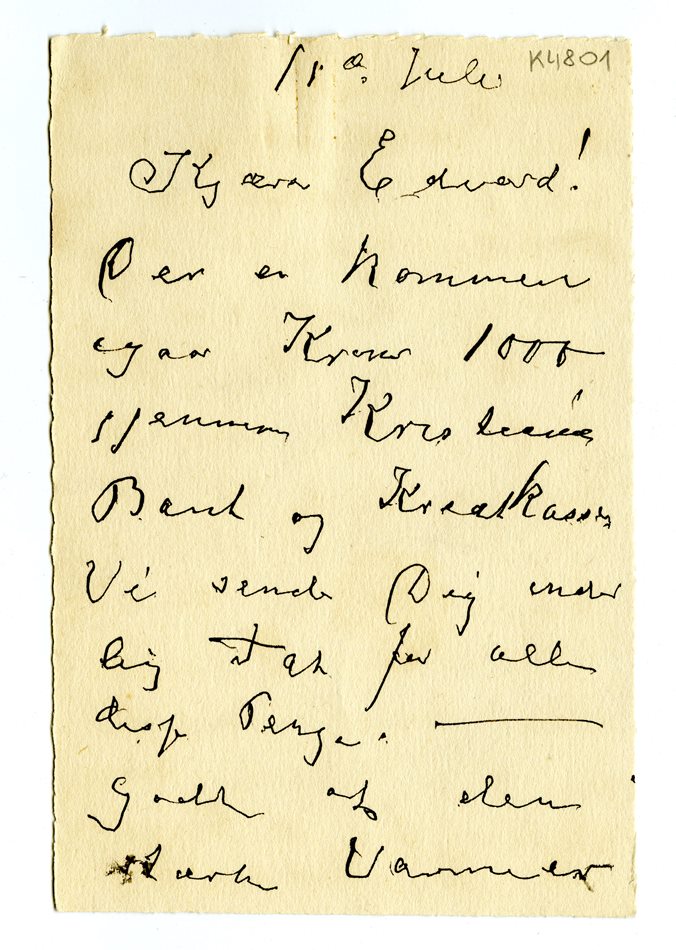 11te Juli K4801
Kjære Edvard!
Der er kommen
igaar Kroner 1000
gjennem Kristiania
Bank og Kreditkasse
Vi sender Dig inder
lig Tak for alle
disse Penge. —
Godt at den
stærke Varme er